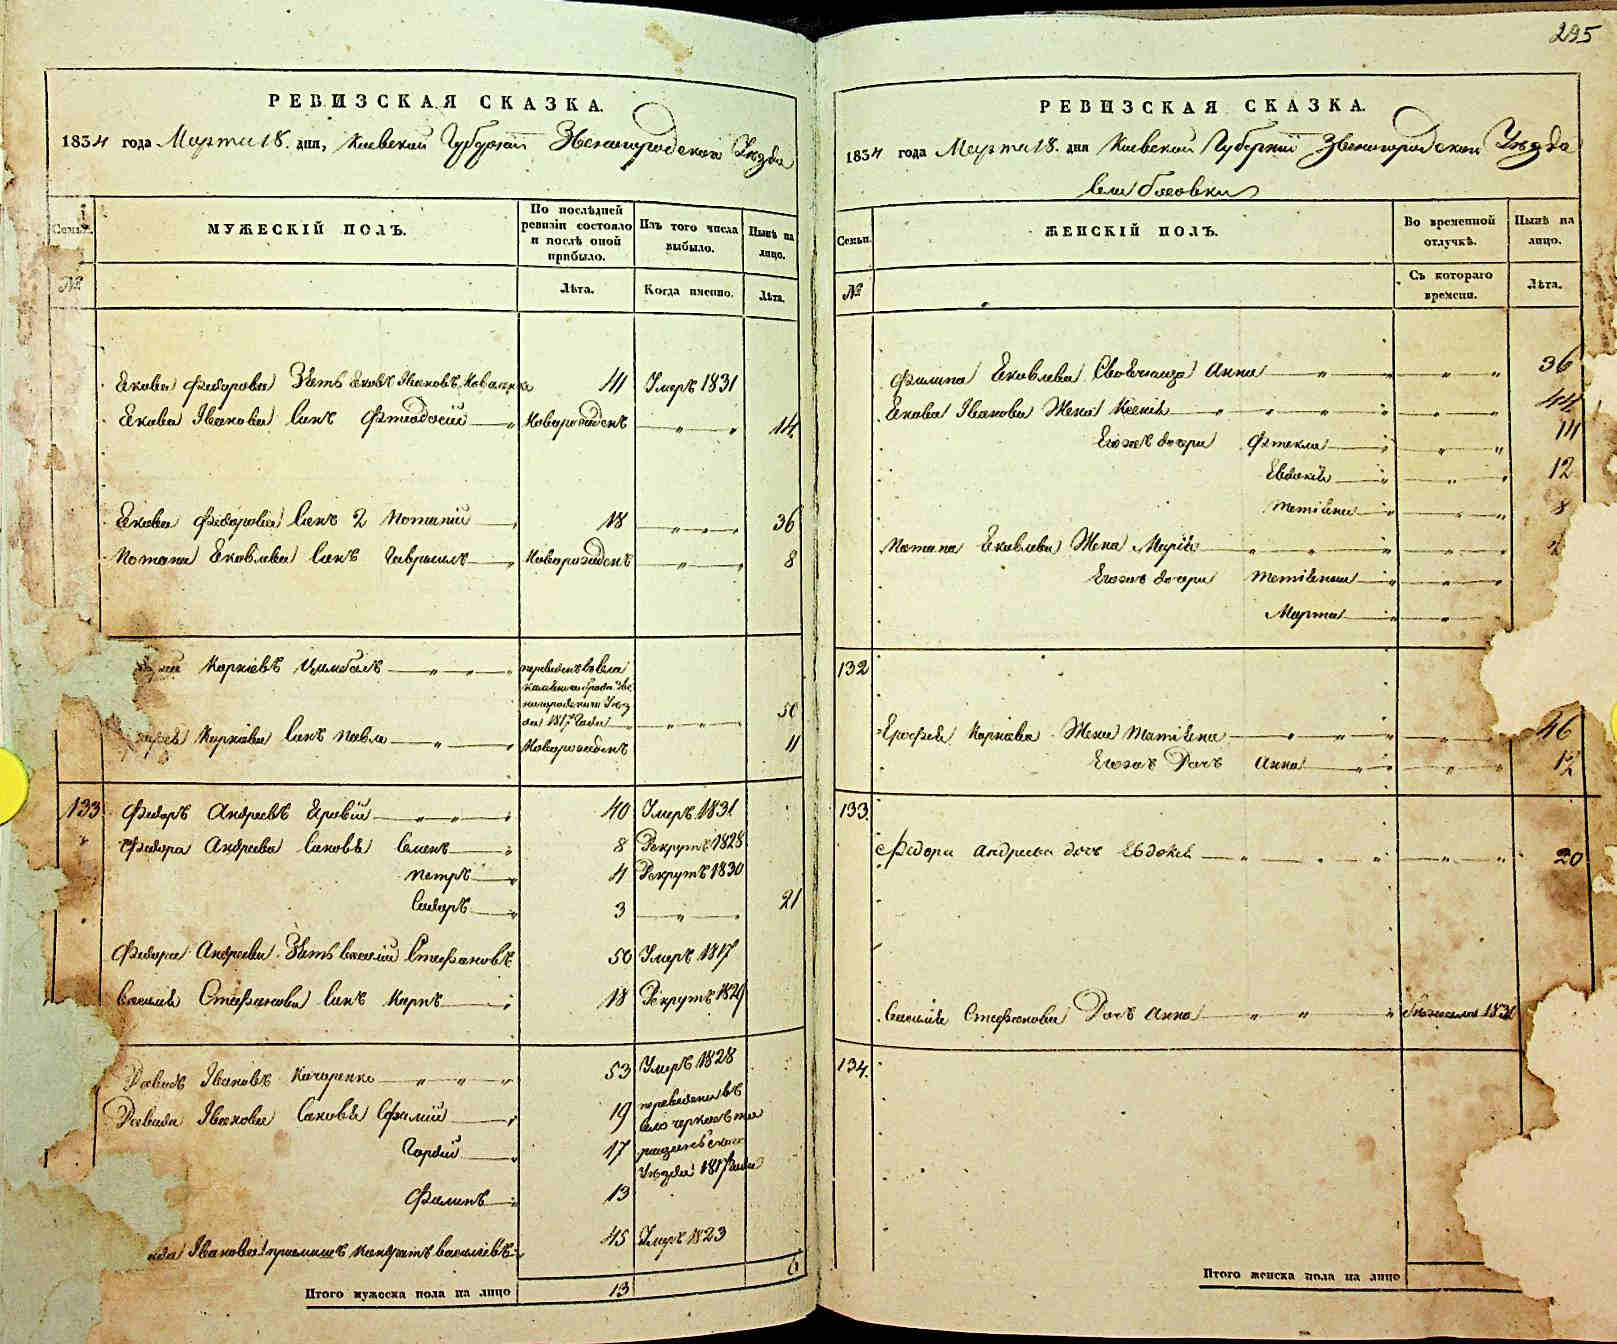 РЕВИЗСКАЯ СКАЗКА.
1834 года Марта 18. дня, Киевской Губернии Звенигородской Уезда
Семьи.
МУЖЕСКІЙ ПОЛЪ.
По послѣдней
ревизіи состояло
и послѣ оной
прибыло.
Изъ того числа
выбыло.
Нынѣ на
лицо.
№
Лѣта.
Когда именно.
Лѣта.
Екова Федорова Зять Сковъ Ивановъ 41 Умеръ 1831
Екова Іванова Синъ Фтеодосій Новорожденъ 14
Екова Федорова Синъ 2 Потапій 18 36
Потапа Яковлева Синъ Гаврыилъ Новорожденъ 8
Корніевъ Цимбалъ переведенъ въ села
1817 Года 50
Корніева Синъ Павла Новорожденъ 11
133 Федоръ Андреевъ Яровій 40 Умеръ 1831
Федора Андреева Синовѣ Семенъ 8 Рекрутъ 1828
Петръ 4 Рекрутъ 1830
Сидоръ 3 21
Федора Андреева Зять Василій Стефановъ 50 Умеръ 1817
Василія Стефанова Синъ Карпъ 18 Рекрутъ 1829
Давидъ Івановъ Кочеренко 53 Умеръ 1828
Давида Іванова Синовѣ 19 переведени въ
село
Гордій 17
Уезда 1817 года
Филипъ 13
Іванова приемишъ Кондратъ Василіевъ 45 Умеръ 1823
Итого мужеска пола на лицо 13 6
295
РЕВИЗСКАЯ СКАЗКА.
1834 года Марта 18. дня Киевской Губерніи Звенигородской Уезда
Семьи.
ЖЕНСКІЙ ПОЛЪ.
Во временной
отлучкѣ.
Нынѣ на
лицо.
№
Съ котораго
времени.
Лѣта.
Филипа Яковлева Своячница Анна 36
Екова Іванова Жена Ксенія 44
Егожъ дочери Фтекла 14
Евдокія 12
8
Потапа Яковлева Жена Марія
Егожъ дочери
Марта
132
Ерофея Корніева Жена 46
Егожъ Дочъ Анна 12
133
Федора Андреева дочъ Евдокія 20
Василія Стефанова Дочъ Анна
134.
Итого женска пола на лицо